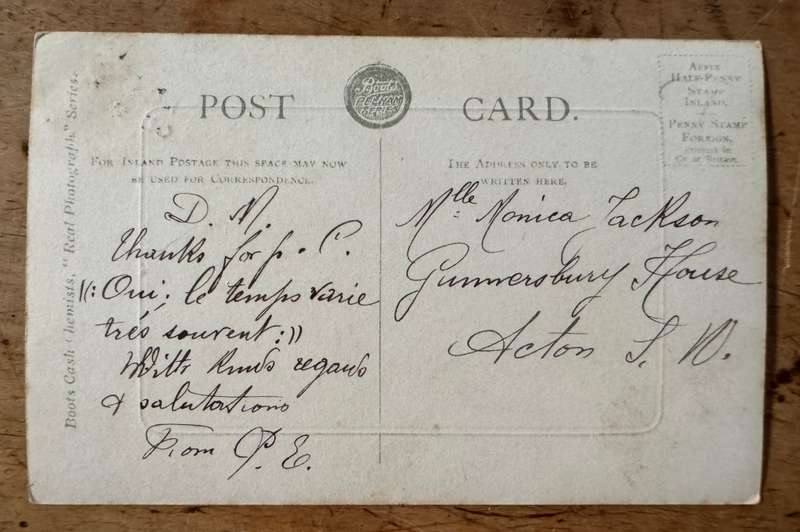 Boots Cash Chemists, "Real Photograph" Series.
POST CARD.
Boots
PELHAM
SERIES
AFFIX
HALF-PENNY
STAMP
INLAND,
PENNY STAMP
FOREIGN,
FOR INLAND POSTAGE THIS SPACE MAY NOW
BE USED FOR CORRESPONDENCE.
THE ADDRESS ONLY TO BE
WRITTEN HERE.
D. M.
thanks for p. C.
((: Oui; le temps varie
trés souvent:))
With Kinds regards
& salutations
From P. E.
Mlle. Monica Jackson
Gunnersbury House
Acton S. W.